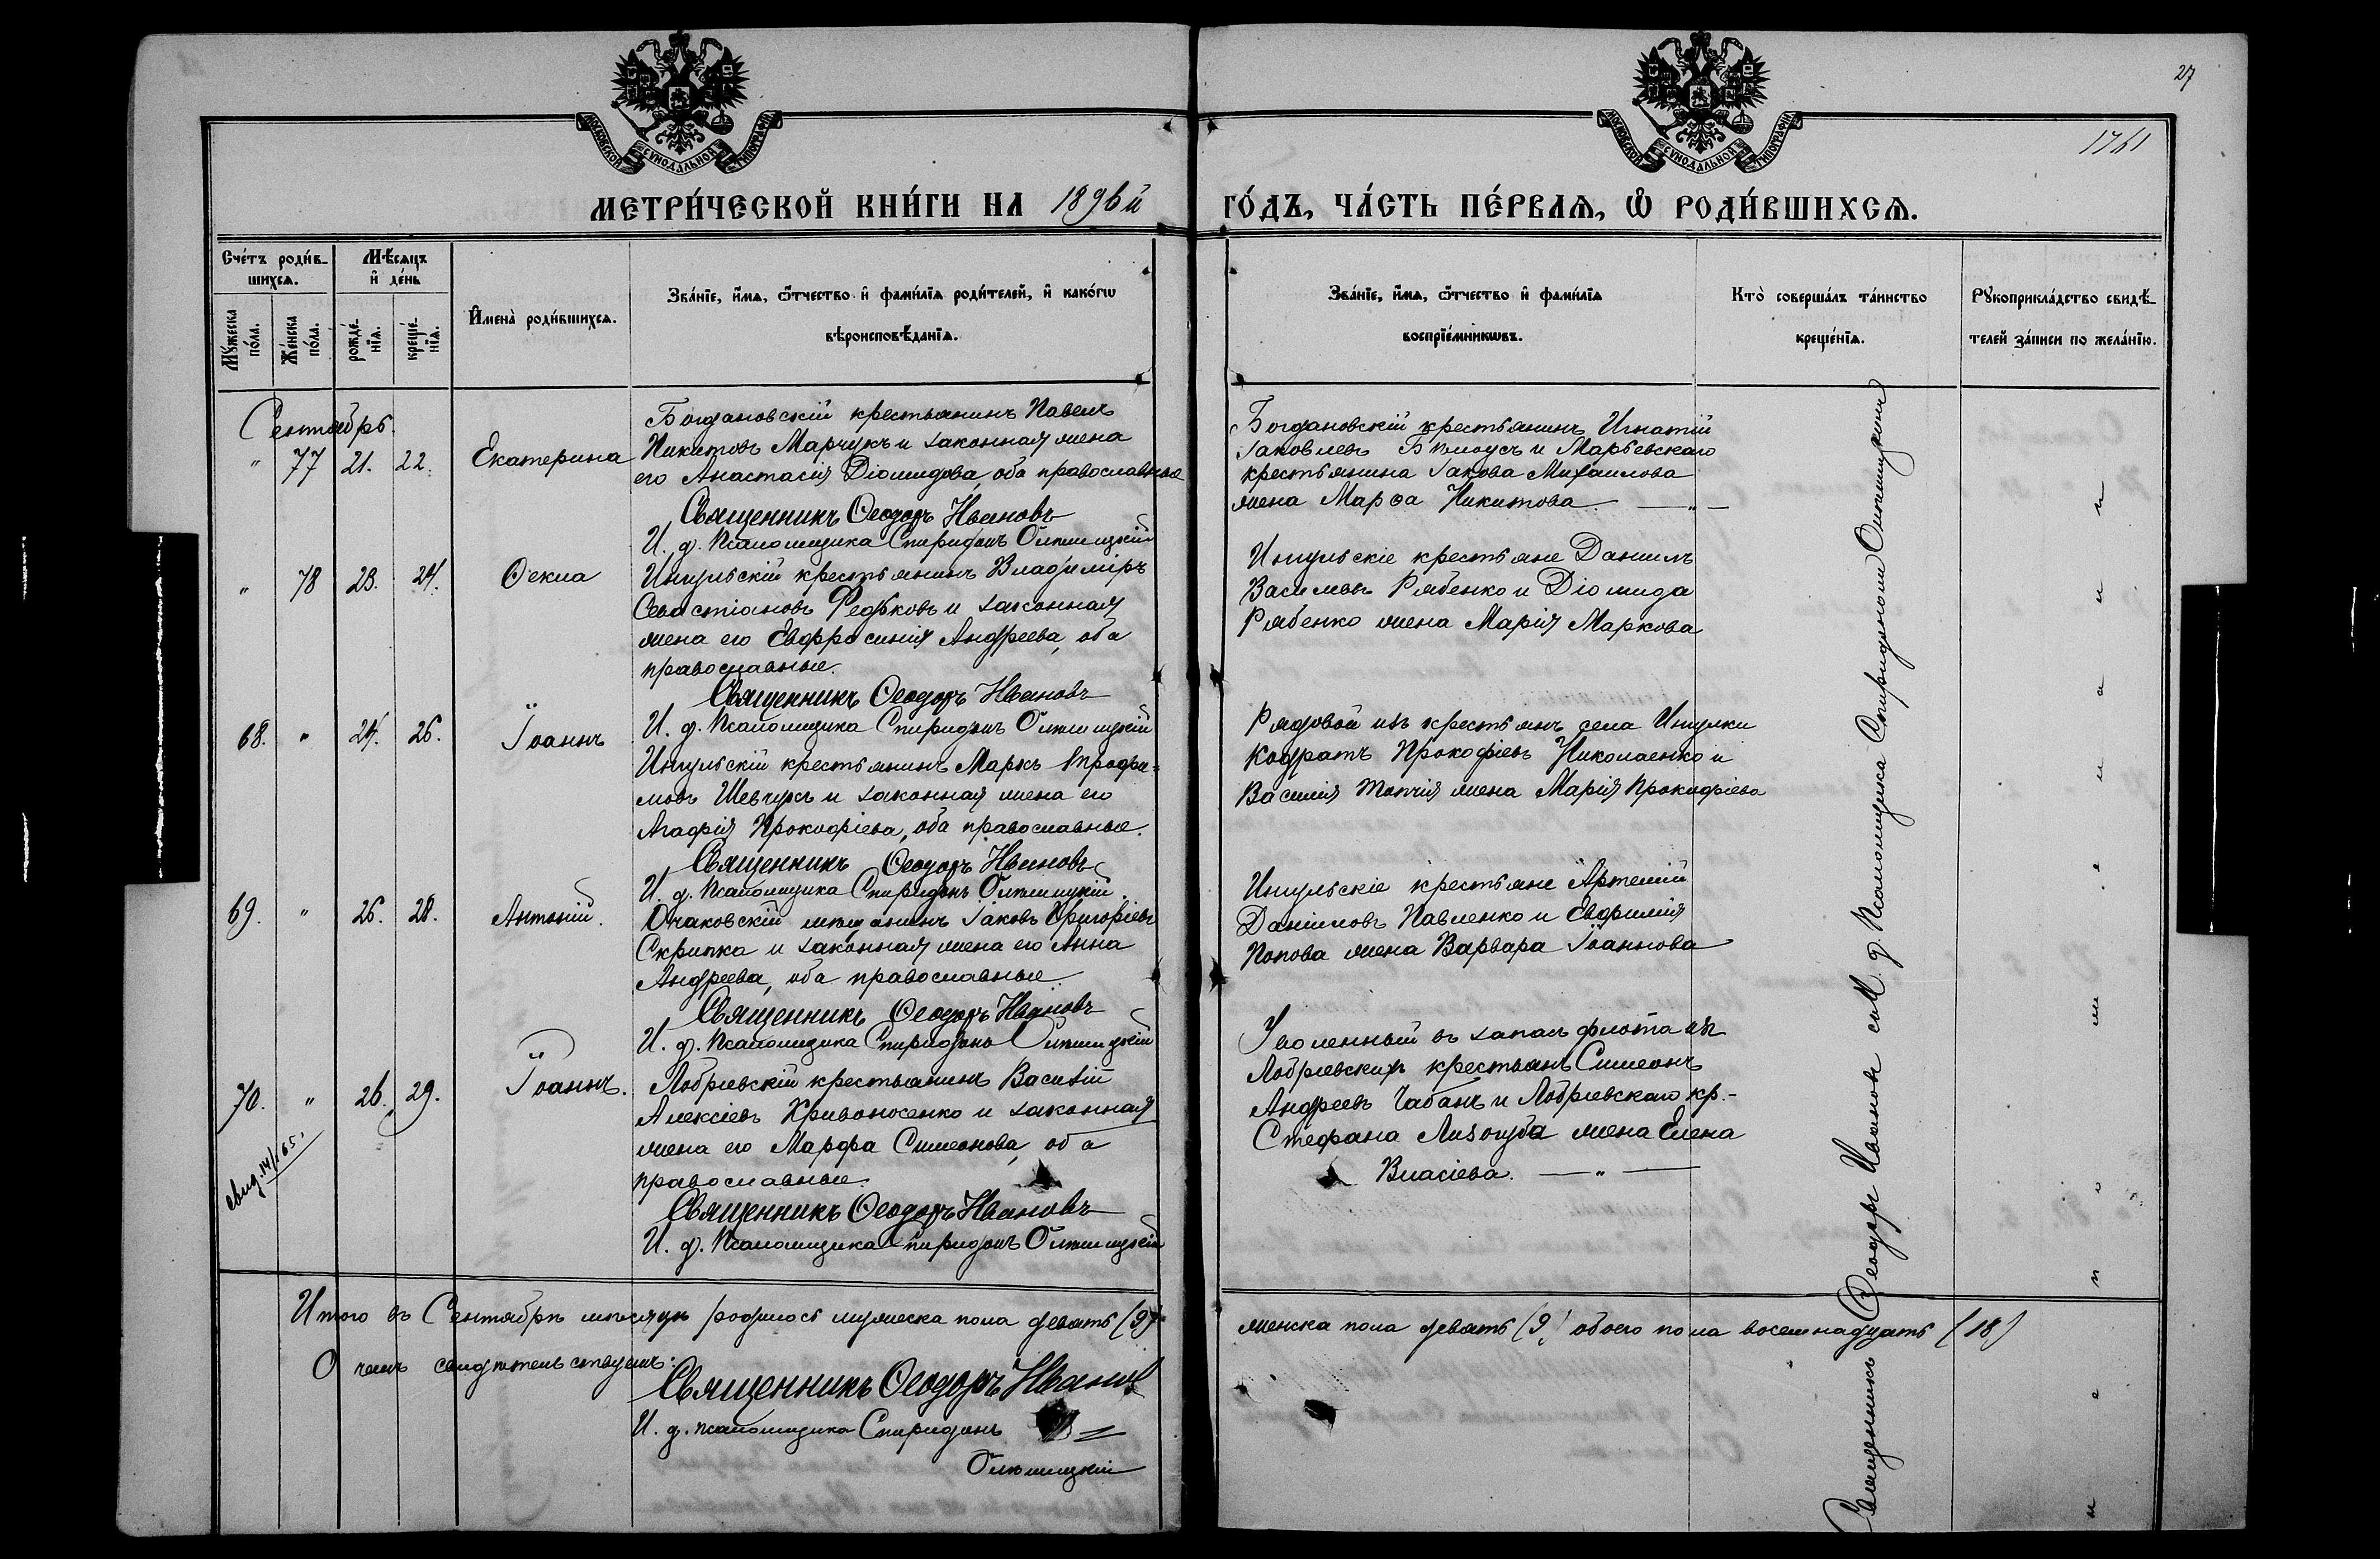 27
1761
МОСКОВСКОЙ СѴНОДАЛЬНОЙ ТИПОГРАФІИ
МОСКОВСКОЙ СѴНОДАЛЬНОЙ ТИПОГРАФІИ
МЕТРИ́ЧЕСКОЙ КНИ́ГИ НА 1896й ГО́ДЪ, ЧА́СТЬ ПЕ́РВАѦ, Ѡ҆ РОДИ́ВШИХСѦ.
Сче́тъ роди́в-
шихсѧ.
Мѣ́сѧцъ
и҆ де́нь
Му́жеска по́ла.
Же́нска по́ла.
рожде́-нїѧ.
креще́-нїѧ.
И҆мена̀ роди́вшихсѧ.
Зва́нїе, и҆́мѧ, ѻ҆́тчество и҆ фами́лїѧ роди́телей, и҆ како́гѡ
вѣроисповѣ́данїѧ.
Зва́нїе, и҆́мѧ, ѻ҆́тчество и҆ фами́лїѧ
воспрїе́мникѡвъ.
Кто̀ соверша́лъ та́инство
креще́нїѧ.
Рꙋкоприкла́дство свидѣ́-
телей за́писи по жела́нїю.
Сентябрь.
" 77 21. 22. Екатерина
Богдановскій крестьянинъ Павелъ
Никитовъ Марчукъ и законная жена
его Анастасія Діомидова, оба православные
Священникъ Ѳеодоръ Ивановъ
И. д. Псаломщика Спиридонъ
Богдановскій крестьянинъ Игнатій
Іаковлевъ Бѣлоусъ и Марьевскаго
крестьянина Іакова Михаилова
жена Марѳа Никитова. — " —
" 78 23. 24. Ѳекла
Ингульскій крестьянинъ Владиміръ
Севастіановъ Редьковъ и законная
жена его Евфросинія Андреева, оба
православные.
Священникъ Ѳеодоръ Ивановъ
И. д. Псаломщика Спиридонъ
Ингульскіе крестьяне Даніилъ
Васильевъ Рябенко и Діомида
Рябенко жена Марія Маркова
68. " 24. 26. Іоаннъ
Ингульскій крестьянинъ Маркъ Трофи-
мовъ Шевчукъ и законная жена его
Агафія Прокофіева, оба православные.
Священникъ Ѳеодоръ Ивановъ
И. д. Псаломщика Спиридонъ
Рядовой изъ крестьянъ села Ингулки
Кодратъ Прокофіевъ Николаенко и
Василія Топчія жена Марія Прокофіева
69. " 26. 28. Антоній.
Очаковскій мѣщанинъ Іаковъ Григоріевъ
Скрипка и законная жена его Анна
Андреева, оба православные.
Священникъ Ѳеодоръ Ивановъ
И. д. Псаломщика Спиридонъ
Ингульскіе крестьяне Артемій
Даніиловъ Павленко и Евфимія
Попова жена Варвара Іоаннова
70. " 26. 29. Іоаннъ.
Лобріевскій крестьянинъ Василій
Алексіевъ Кривоноженко и законная
жена его Марфа Симеонова, оба
православные.
Священникъ Ѳеодоръ Ивановъ
И. д. Псаломщика Спиридонъ
Уволенный въ запасъ флота изъ
Лобріевскихъ крестьянъ Симеонъ
Андреевъ Чабанъ и Лобріевскаго кр.-
Стефана Лизогуба жена Елена
Власіева. — " —
Итого въ Сентябрѣ мѣсяцѣ родилось мужеска пола девять (9)
женска пола девять (9) обоего пола восемнадцать (18)
О чемъ свидѣтельствуемъ:
Священникъ Ѳеодоръ Ивановъ
И. д. псаломщика Спиридонъ
Священникъ Ѳеодоръ Ивановъ съ И. д. Псаломщика Спиридономъ